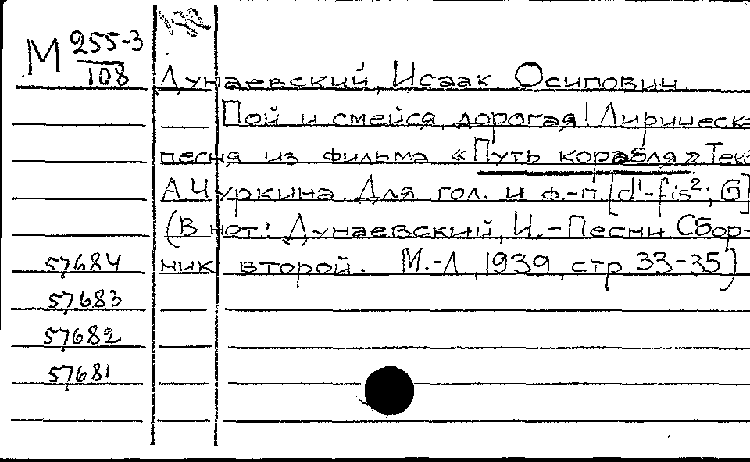 М 255-3
108
Дунаевский, Исаак Осипович
Пой и смейся, дорогая! Лирическ
песня из фильма «Путь корабля». Тек
А. Чуркина Для гол. и ф.-п. [d¹-fis²; G]
(В нот: Дунаевский, И. - Песни Сбор-
57684 ник второй. М.-Л, 1939, стр 33-35)
57683
57682
57681